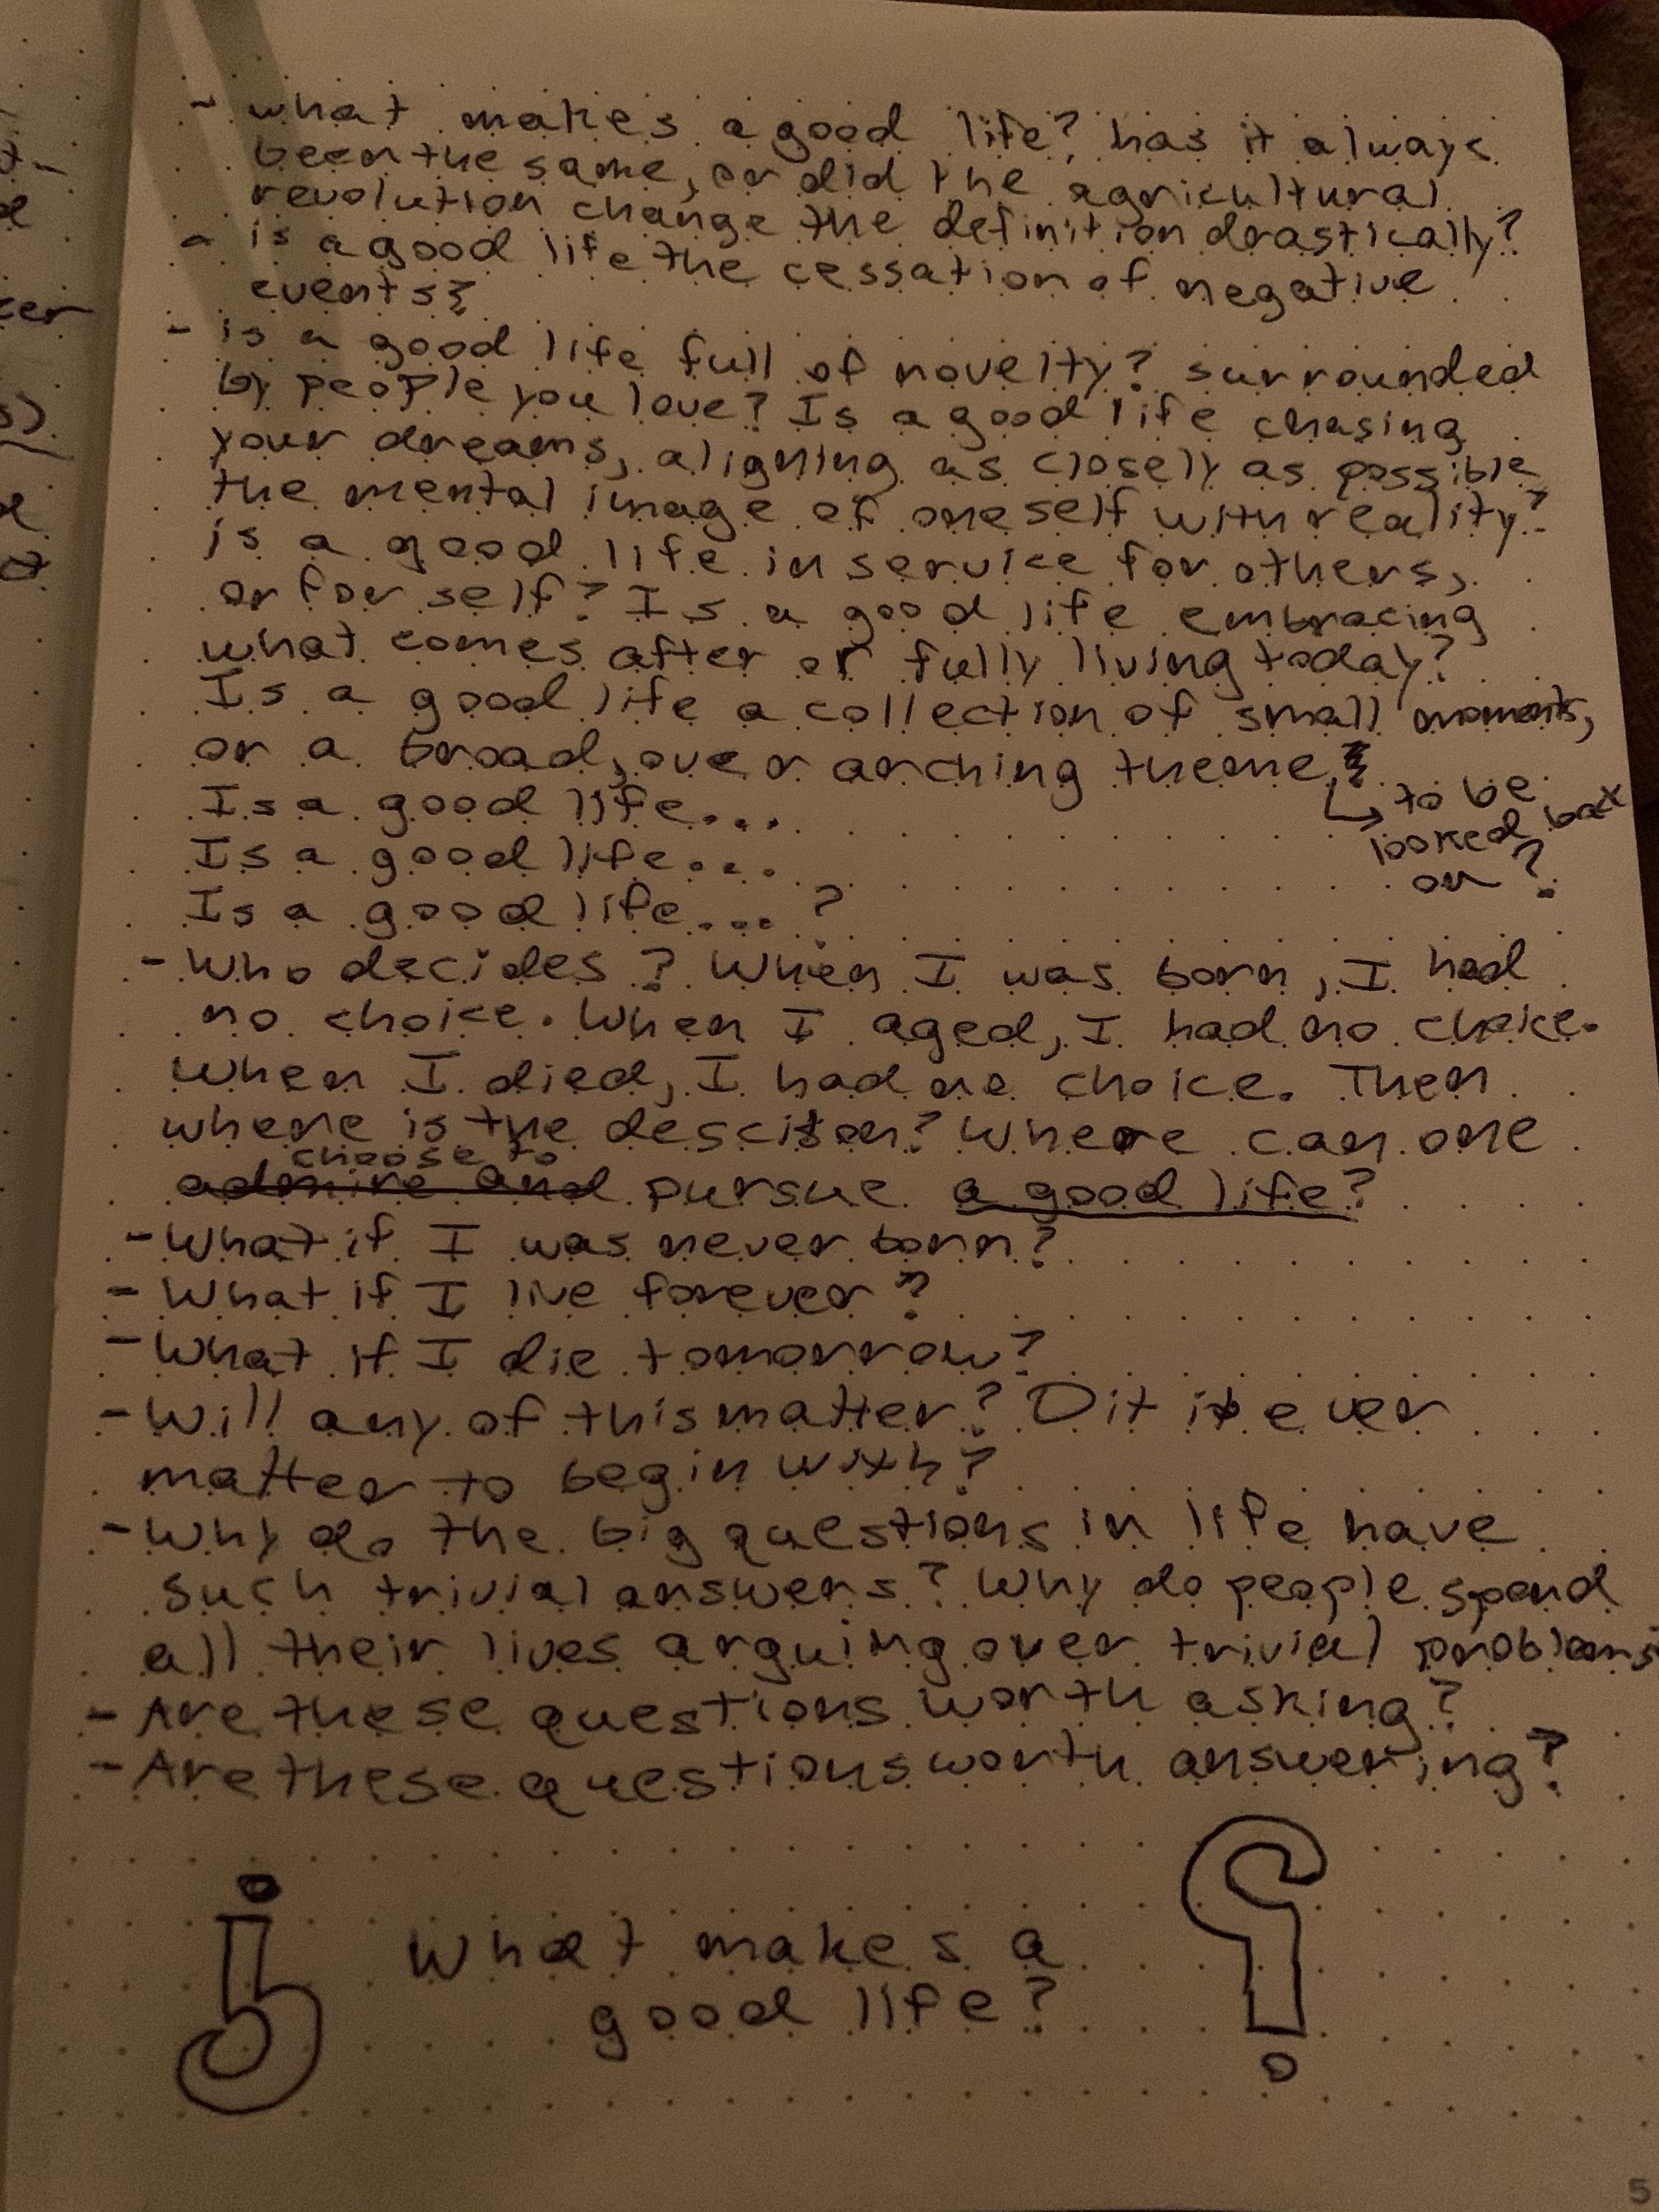 - what makes a good life? has it always
been the same, or did the agricultural
revolution change the definition drastically?
- is a good life the cessation of negative
events?
- is a good life full of novelty? surrounded
by people you love? Is a good life chasing
your dreams, aligning as closely as possible
the mental image of oneself with reality?
is a good life in service for others,
or for self? Is a good life embracing
what comes after or fully living today?
Is a good life a collection of small moments,
or a broad, over arching theme
↳ to be
looked back
on?
Is a good life...
Is a good life...
Is a good life...?
- Who decides? When I was born, I had
no choice. When I aged, I had no choice.
When I died, I had no choice. Then
where is the descison? Where can one
choose to
admire and pursue a good life?
- What if I was never born?
- What if I live forever?
- What if I die tomorrow?
- Will any of this matter? Dit it ever
matter to begin with?
- Why do the big questions in life have
such trivial answers? Why do people spend
all their lives arguing over trivial problems
- Are these questions worth asking?
- Are these questions worth answering?
¿ What makes a ?
good life?
5